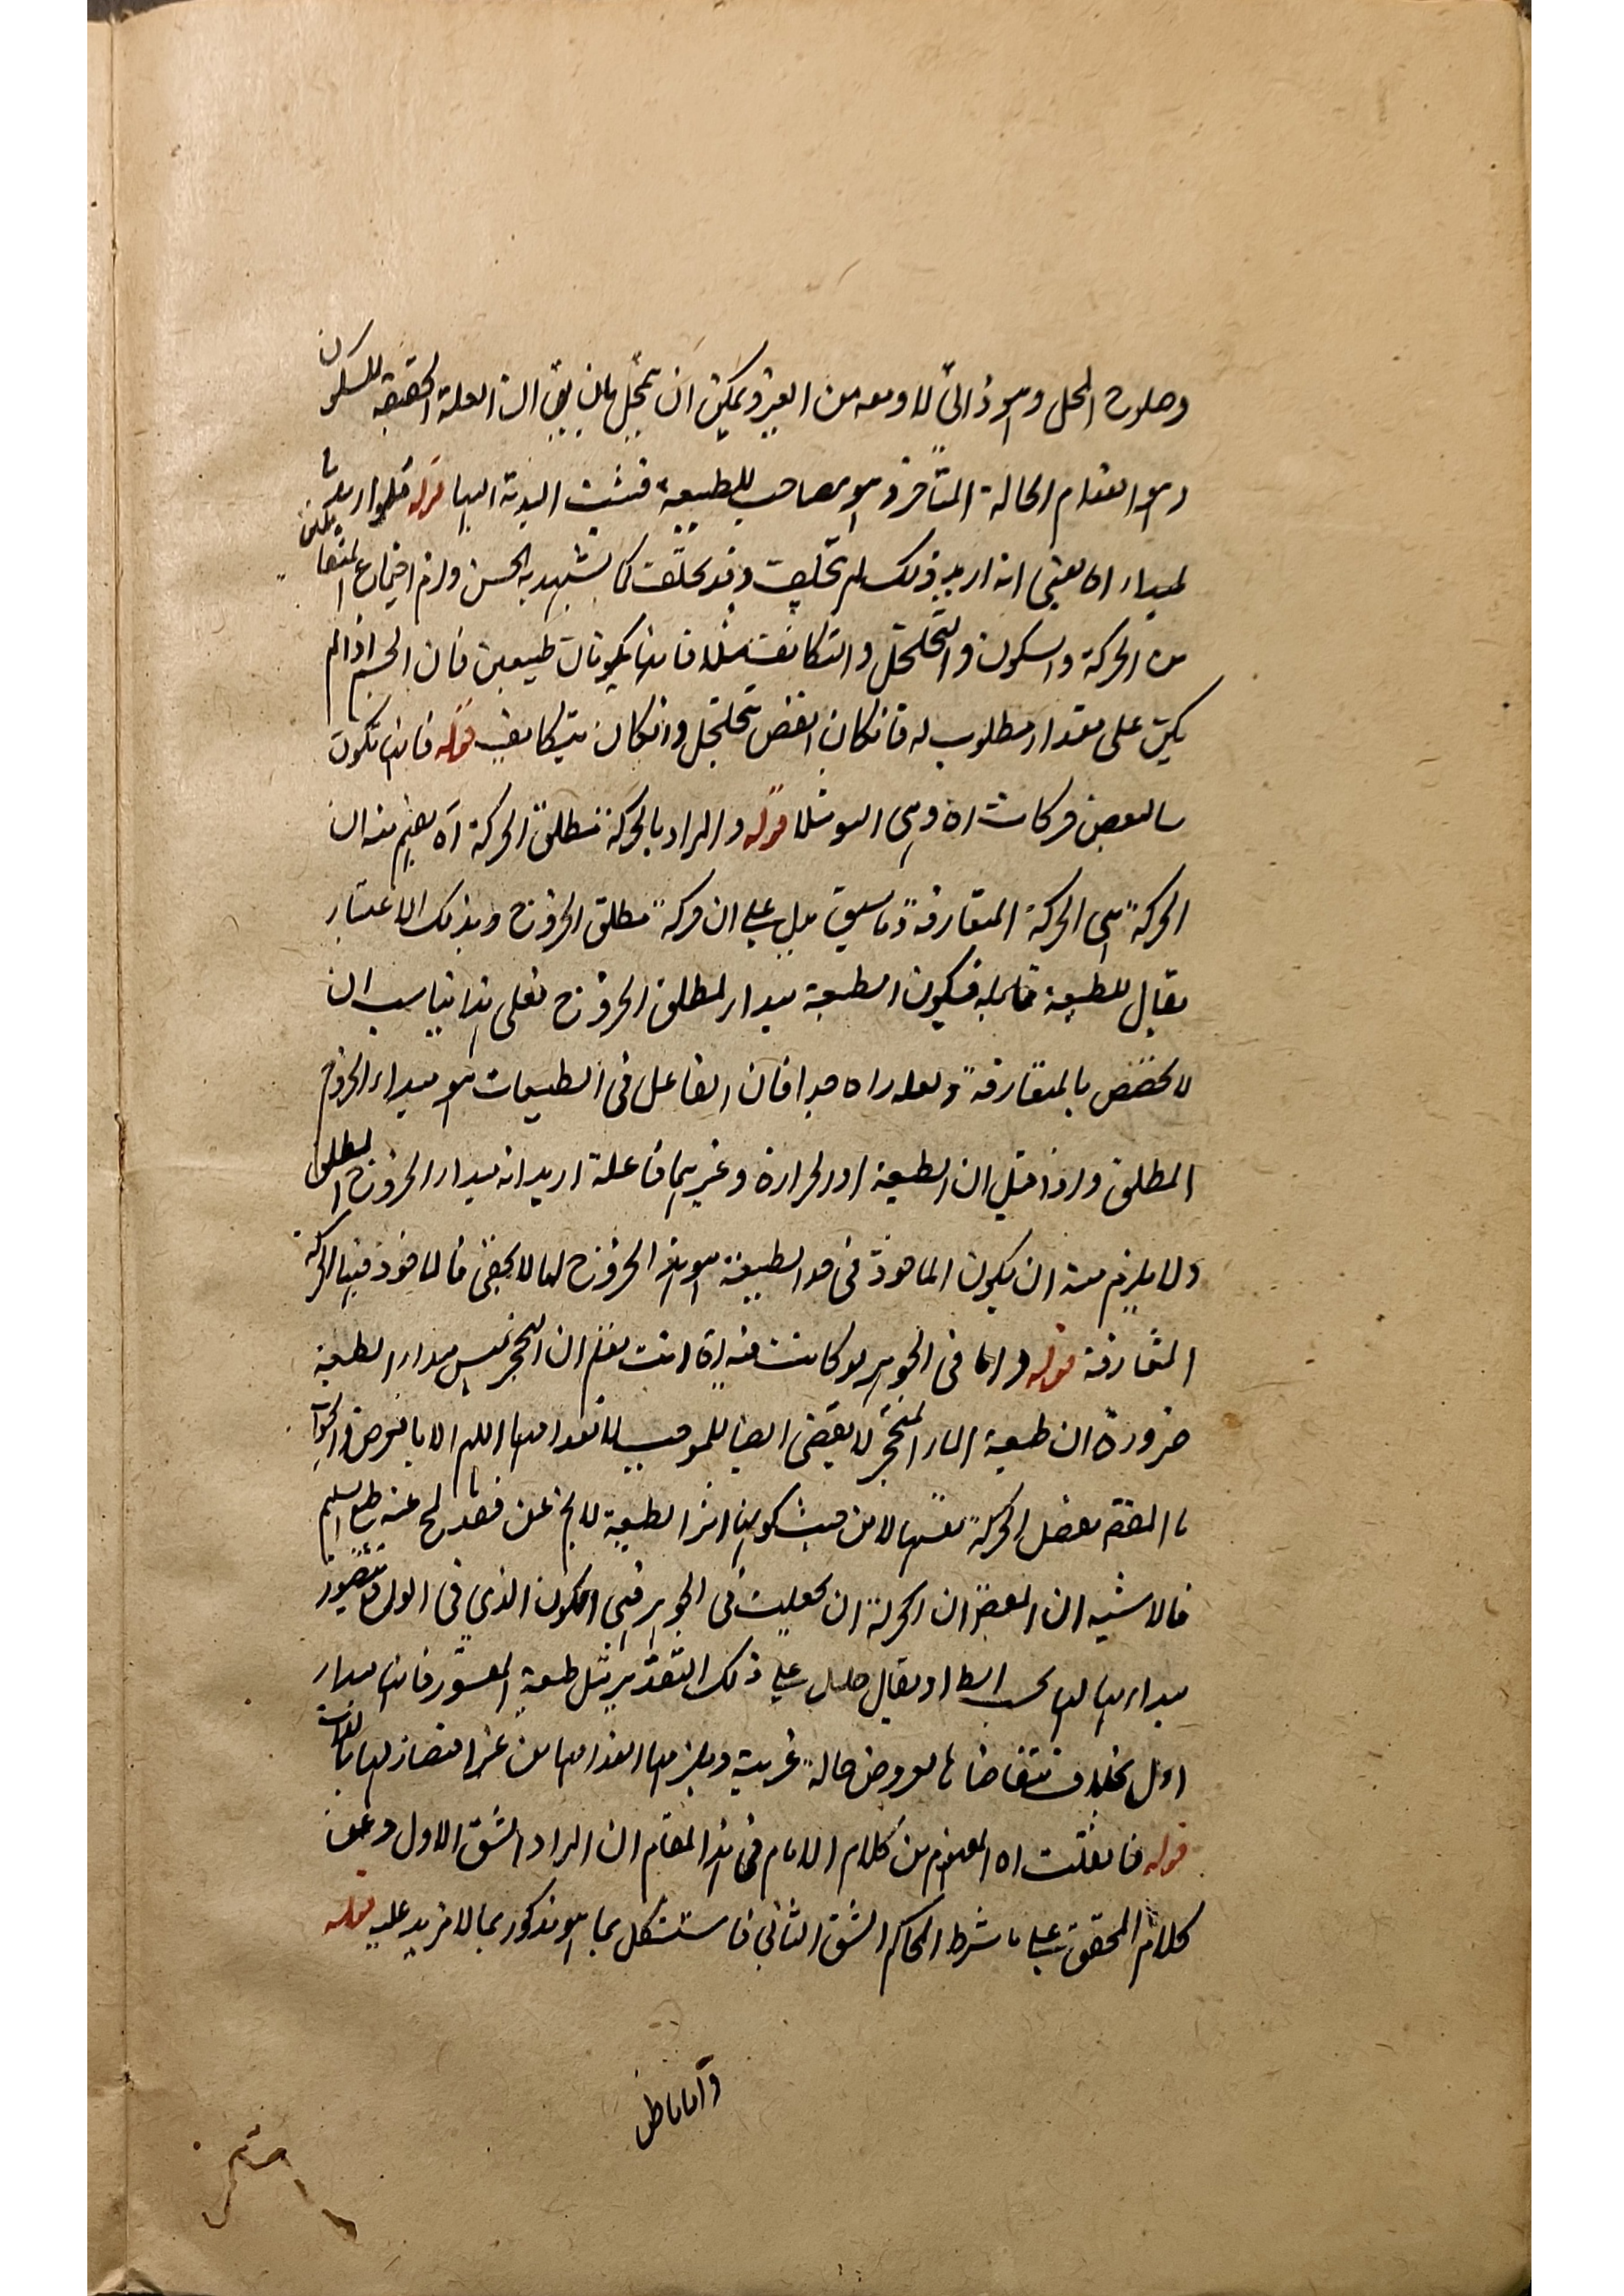 وصلوح المحل وهو ذاتي لا ومعه من الغير ويمكن ان يتمحل بان يق ان العلة الحقيقة للسكون
وهو انعدام الحالة المتأخرة وهو مصاحب للطبيعة فنسبت اليدية اليها قوله فلو اريد بها
لمبداء اه يعني انه اريد ذلك لم يتخلف وقد يختلف كما يشهد به الحس ولزم اجتماع المتقابلين
من الحركة والسكون والتخلخل والتكاثف مثلا فانهما يكونان طبيعيين فان الجسم اذا لم
يكن على مقدار مطلوب له فان كان انقص يتخلخل وان كان يتكاثف قوله فانها تكون
سالبعض حركات اه وهي النمو مثلا قوله والمراد بالحركة مطلق الحركة آه يفهم منه ان
الحركة هي الحركة المتعارفة وما سبق يدل على ان حركة مطلق الخروج وبذلك الاعتبار
يقال للطبيعة فاعلة فيكون الطبيعة مبداء لمطلق الخروج فعلى هذا يناسب ان
لا يخصص بالمتعارفة ولعله راه جدا فان الفاعل في الطبيعات هو مبداء الخروج
المطلق واذا قيل ان الطبيعة او الحرارة وغيرهما فاعلة اريد انه مبداء الخروج المطلق
ولا يلزم منه ان يكون الماخوذ في حد الطبيعة هو هذا الخروج لما لا يخفى فالماخوذ فيها الحركة
المتعارفة قوله واما في الجوهر لو كانت فيه اه انت تعلم ان التحجر ليس مبداء الطبيعة
ضرورة ان طبيعة الماء المتحجر لا يقتضي ايضا للموجب لانعدامها اللهم الا بالعرض والجواب
ما المفهم بفصل الحركة نفسها لا من حيث كونها اثر الطبيعة لا يخ عن قصد لمح عنه طبع السليم
فالاشبه ان المعترض ان الحركة ان جعلت في الجوهر فهي الكون الذي في الوليد فيتصور
مبداء بها لها بحسب الظ او يقال حلل على ذلك التقدير مثل طبيعة المقسور فانها مبداء
اول بخلاف مقتضاها لعروض حالة غريبة ويلزمها انعدامها من غير اقتضاء لها بالذات
قوله فان قلت اه المفهوم من كلام الامام في هذا المقام ان المراد الشق الاول وحمل
كلام المحقق على ما شرط الحاكم الشق الثاني فاستشكل بما هو مذكور بما لا مزيد عليه قوله
واما ما ظن